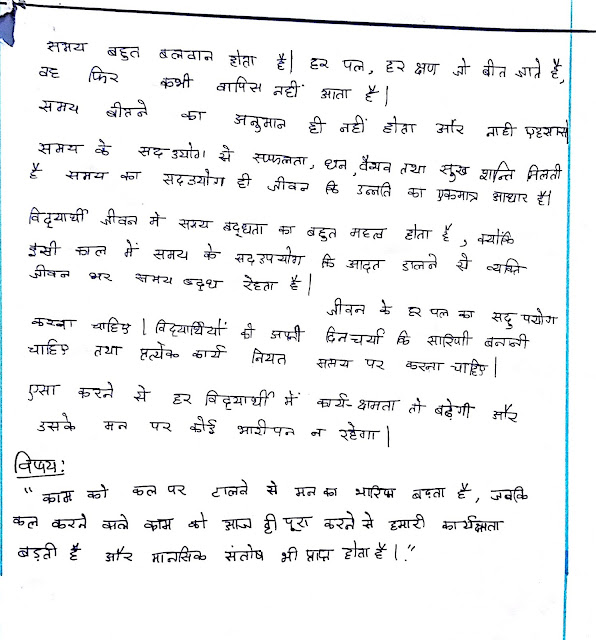 समय बहुत बलवान होता है| हर पल, हर क्षण जो बीत जाते है,
वह फिर कभी वापिस नहीं आता है|
समय बीतने का अनुमान ही नहीं होता और नाही
समय के सदउयोग से सफलता, धन, वैभव तथा सुख शान्ति मिलती
है समय का सदउयोग ही जीवन कि उन्नति का एकमात्र आधार है|
विद्यार्थी जीवन मे समय बद्धता का बहुत महत्व होता है, क्योंकि
इसी काल में समय के सदउपयोग कि आदत डालने से व्यक्ति
जीवन भर समय बद्ध रेहता है|
जीवन के हर पल का सदुपयोग
करना चाहिए| विद्यार्थियों को अपनी दिनचर्या कि सारिणी बनानी
चाहिए तथा प्रत्येक कार्य नियत समय पर करना चाहिए|
एसा करने से हर विद्यार्थी में कार्य-क्षमता तो बढ़ेगी और
उसके मन पर कोई भारीपन न रहेगा|
विषय:
"काम को कल पर टालने से मन का भारिपन बढता है, जबकि
कल करने वाले काम को आज ही पूरा करने से हमारी कार्यक्षमता
बड़ती है और मानसिक संतोष भी प्राप्त होता है|."